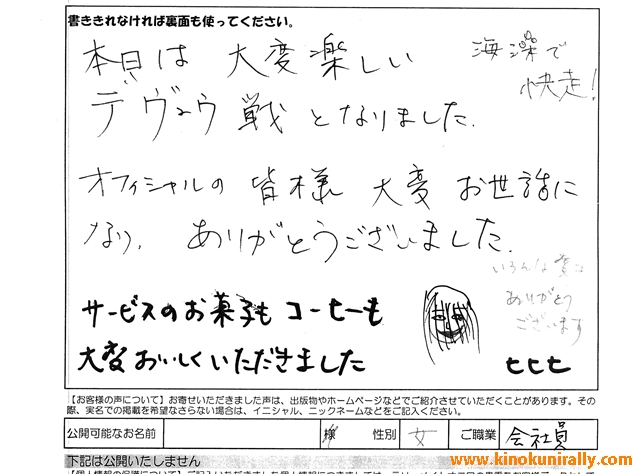 書ききれなければ裏面も使ってください。
本日は 大変楽しい
デヴュウ戦 となりました.
海藻で
快走!
オフィシャルの 皆様 大変 お世話に
なり、ありがとうございました.
いろんな
ありがとう
ございます
サービスのお菓子も コーヒーも
大変おいしくいただきました
ヒヒヒ
【お客様の声について】お寄せいただきました声は、出版物やホームページなどでご紹介させていただくことがあります。その
際、実名での掲載を希望なさらない場合は、イニシャル、ニックネームなどをご記入ください。
公開可能なお名前 様 性別 女 ご職業 会社員
下記は公開いたしません
www.kinokunirally.com